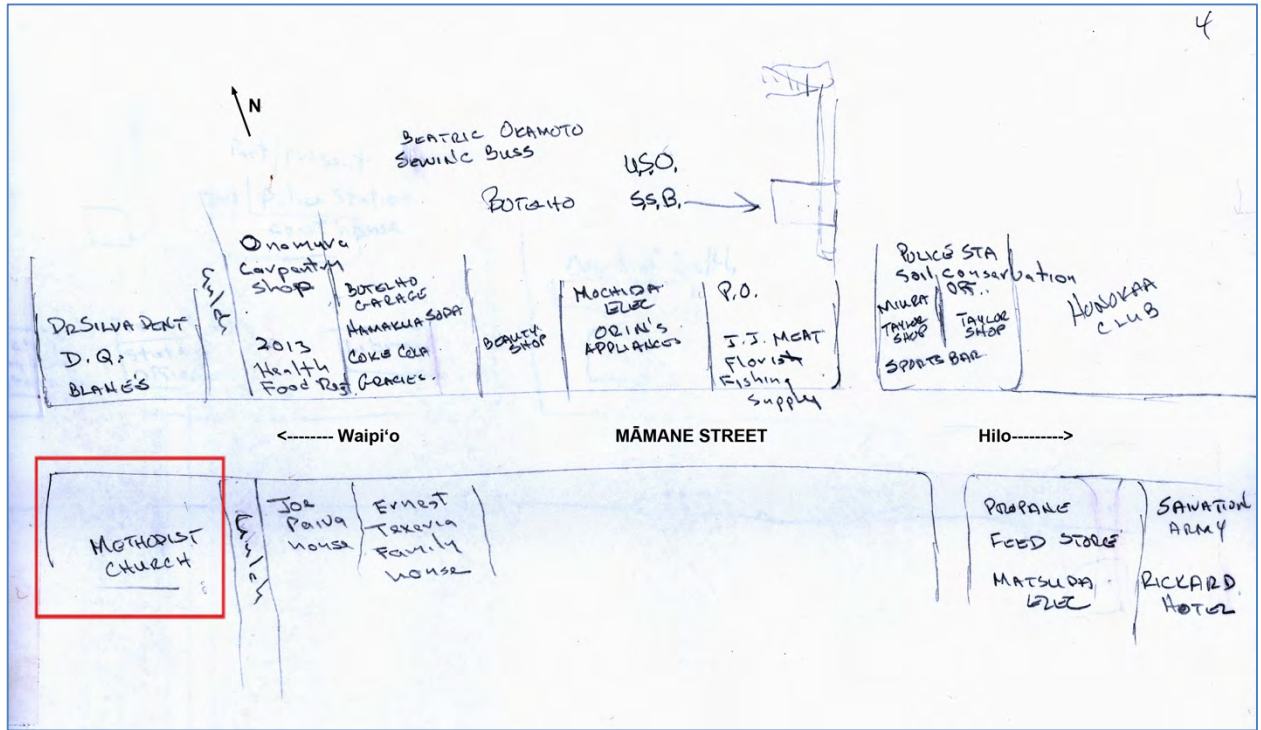 4
N
BEATRIC OKAMOTO
SEWING BUSS
U.S.O.
BOTELHO
S.S.B.
DR SILVA DENT
D.Q.
BLANE'S
Onomura
Carpentry
Shop
2013
Health
Food Res.
BOTELHO
GARAGE
HAMAKUA SODA
COKE COLA
GRACIES.
BEAUTY
SHOP
MOCHIDA
ELEC
ORIN'S
APPLIANCES
P.O.
J.J. MEAT
Florist
Fishing
Supply
POLICE STA
Soil Conservation
OFF..
MIURA
TAYLOR
SHOP
TAYLOR
SHOP
SPORTS BAR
HONOKAA
CLUB
<-------- Waipi‘o
MĀMANE STREET
Hilo--------->
METHODIST
CHURCH
Joe
Paiva
house
Ernest
Texeria
Family
house
PROPANE
FEED STORE
MATSUDA
ELEC
SALVATION
ARMY
RICKARD
HOTEL